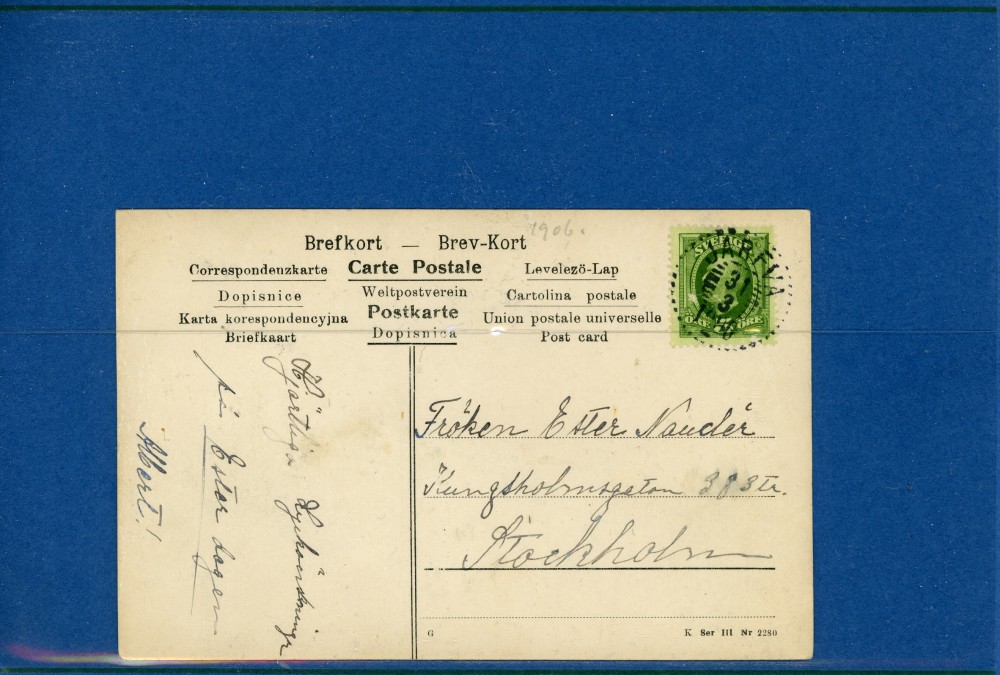 1906.
Brefkort — Brev-Kort
Correspondenzkarte Carte Postale Levelezö-Lap
Dopisnice Weltpostverein Cartolina postale
Karta korespondencyjna Postkarte Union postale universelle
Briefkaart Dopisnica Post card
SVERIGE
JÄRFVA
31
3
06
Hjärtliga Lyckönskningr
på Ester dagen
Albert!
Fröken Ester Naudér
Kungsholmsgatan 38 3 tr.
Stockholm
G K Ser III Nr 2280